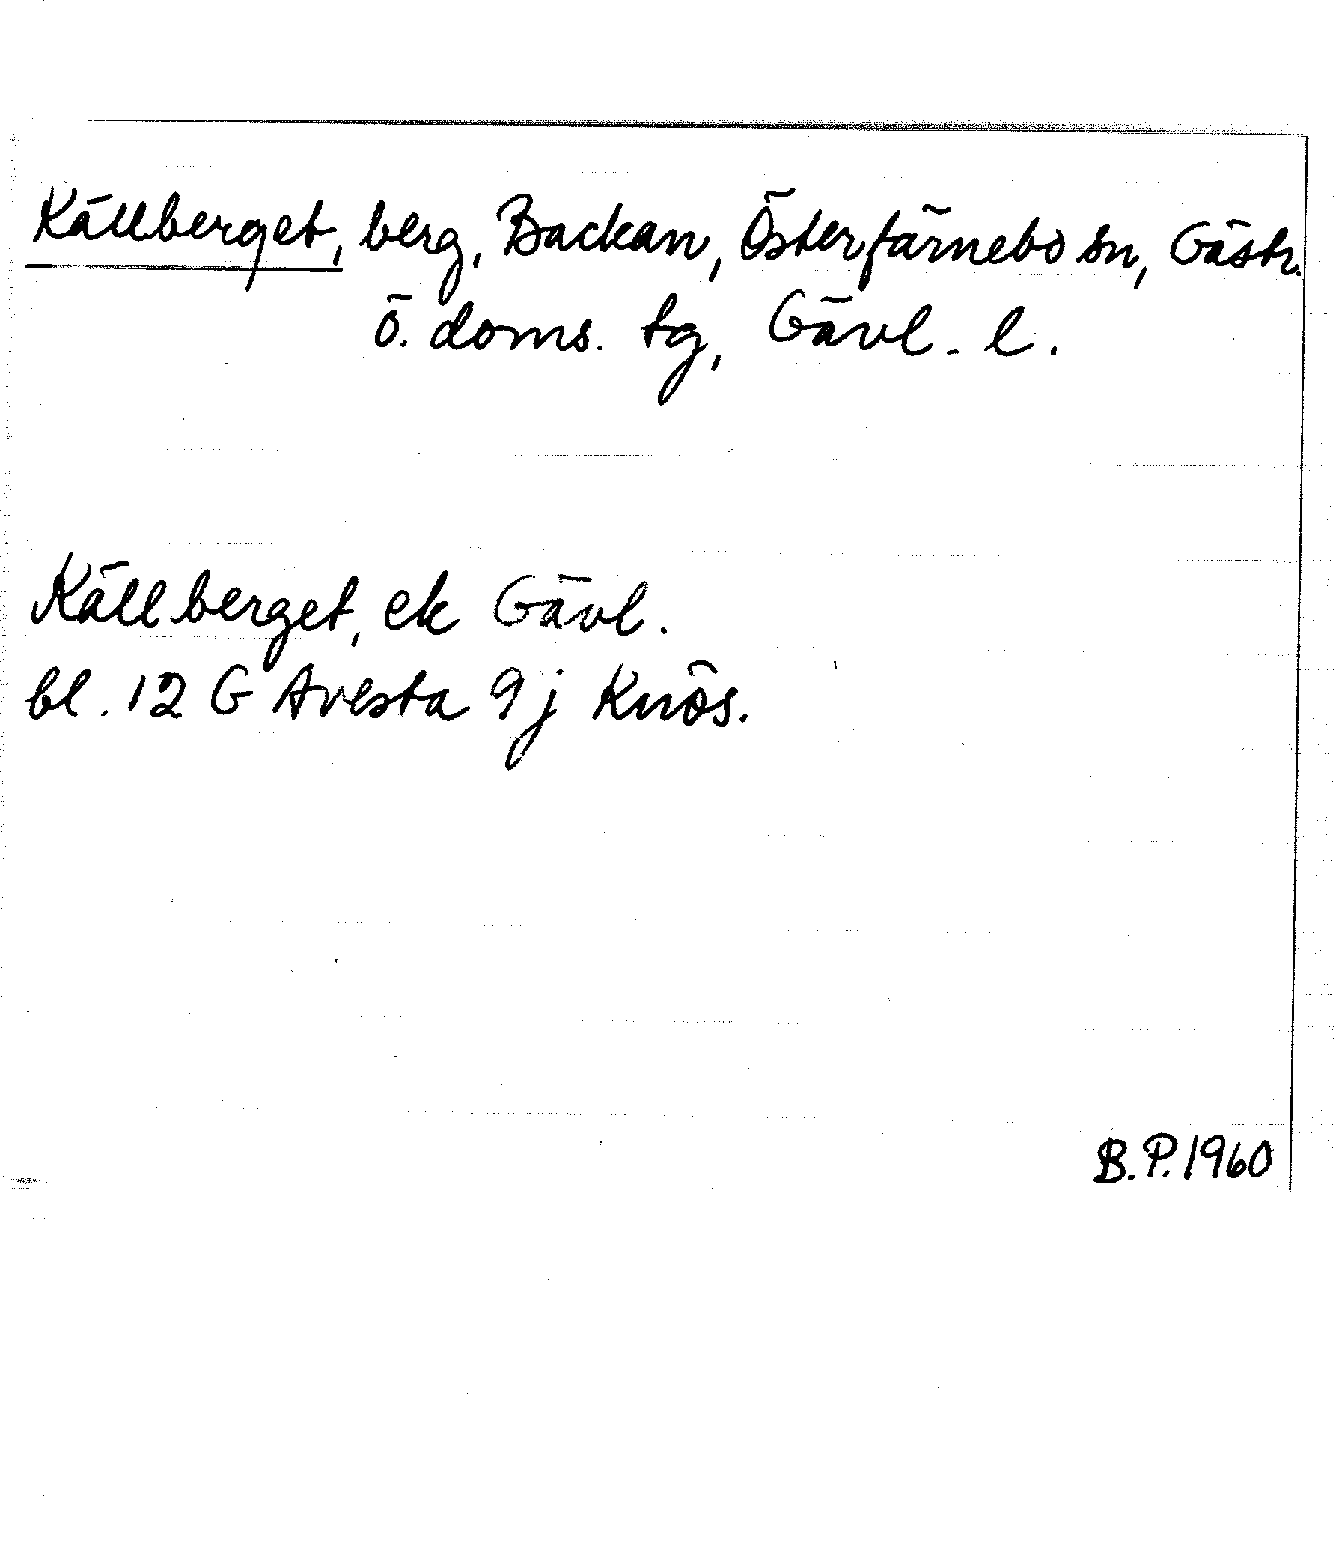 Källberget, berg, Backan, Österfärnebo sn, Gästr.
ö. doms. tg, Gävl. l.
Källberget, ek Gävl.
bl. 12 G Avesta 9 j Knös.
B.P. 1960